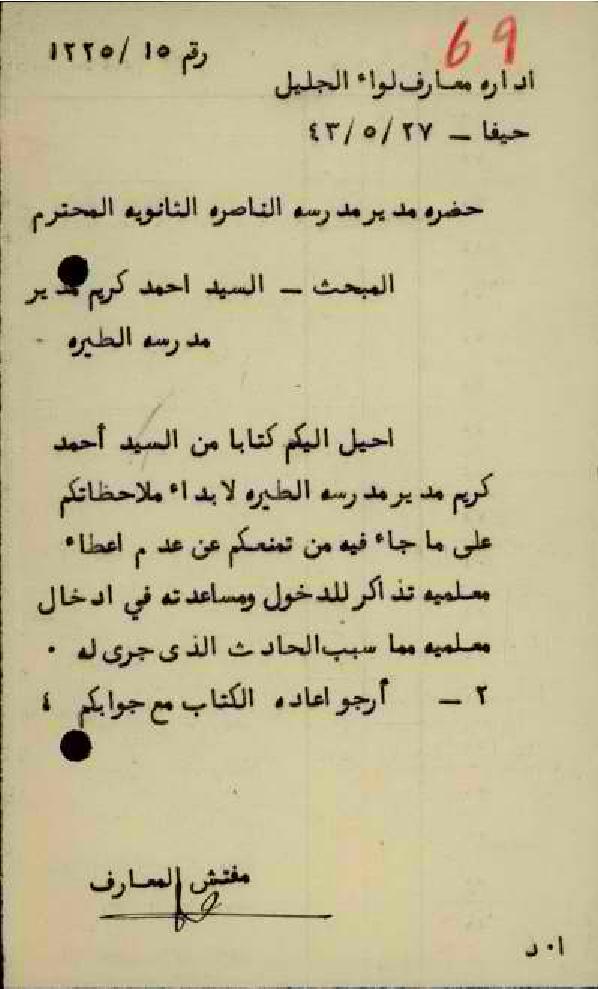 69
رقم ١٥ /١٢٢٥
اداره معارف لواء الجليل
حيفا ــ ٢٧ /٥ /٤٣
حضره مدير مدرسه الناصره الثانويه المحترم
المبحث ــ السيد احمد كريم مدير
مدرسه الطيره
احيل اليكم كتابا من السيد أحمد
كريم مدير مدرسه الطيره لابداء ملاحظاتكم
على ما جاء فيه من تمنعكم عن عدم اعطاء
معلميه تذاكر للدخول ومساعدته في ادخال
معلميه مما سبب الحادث الذى جرى له ٠
٢ ــ أرجو اعاده الكتاب مع جوابكم ؛
مفتش المعارف
ا٠د